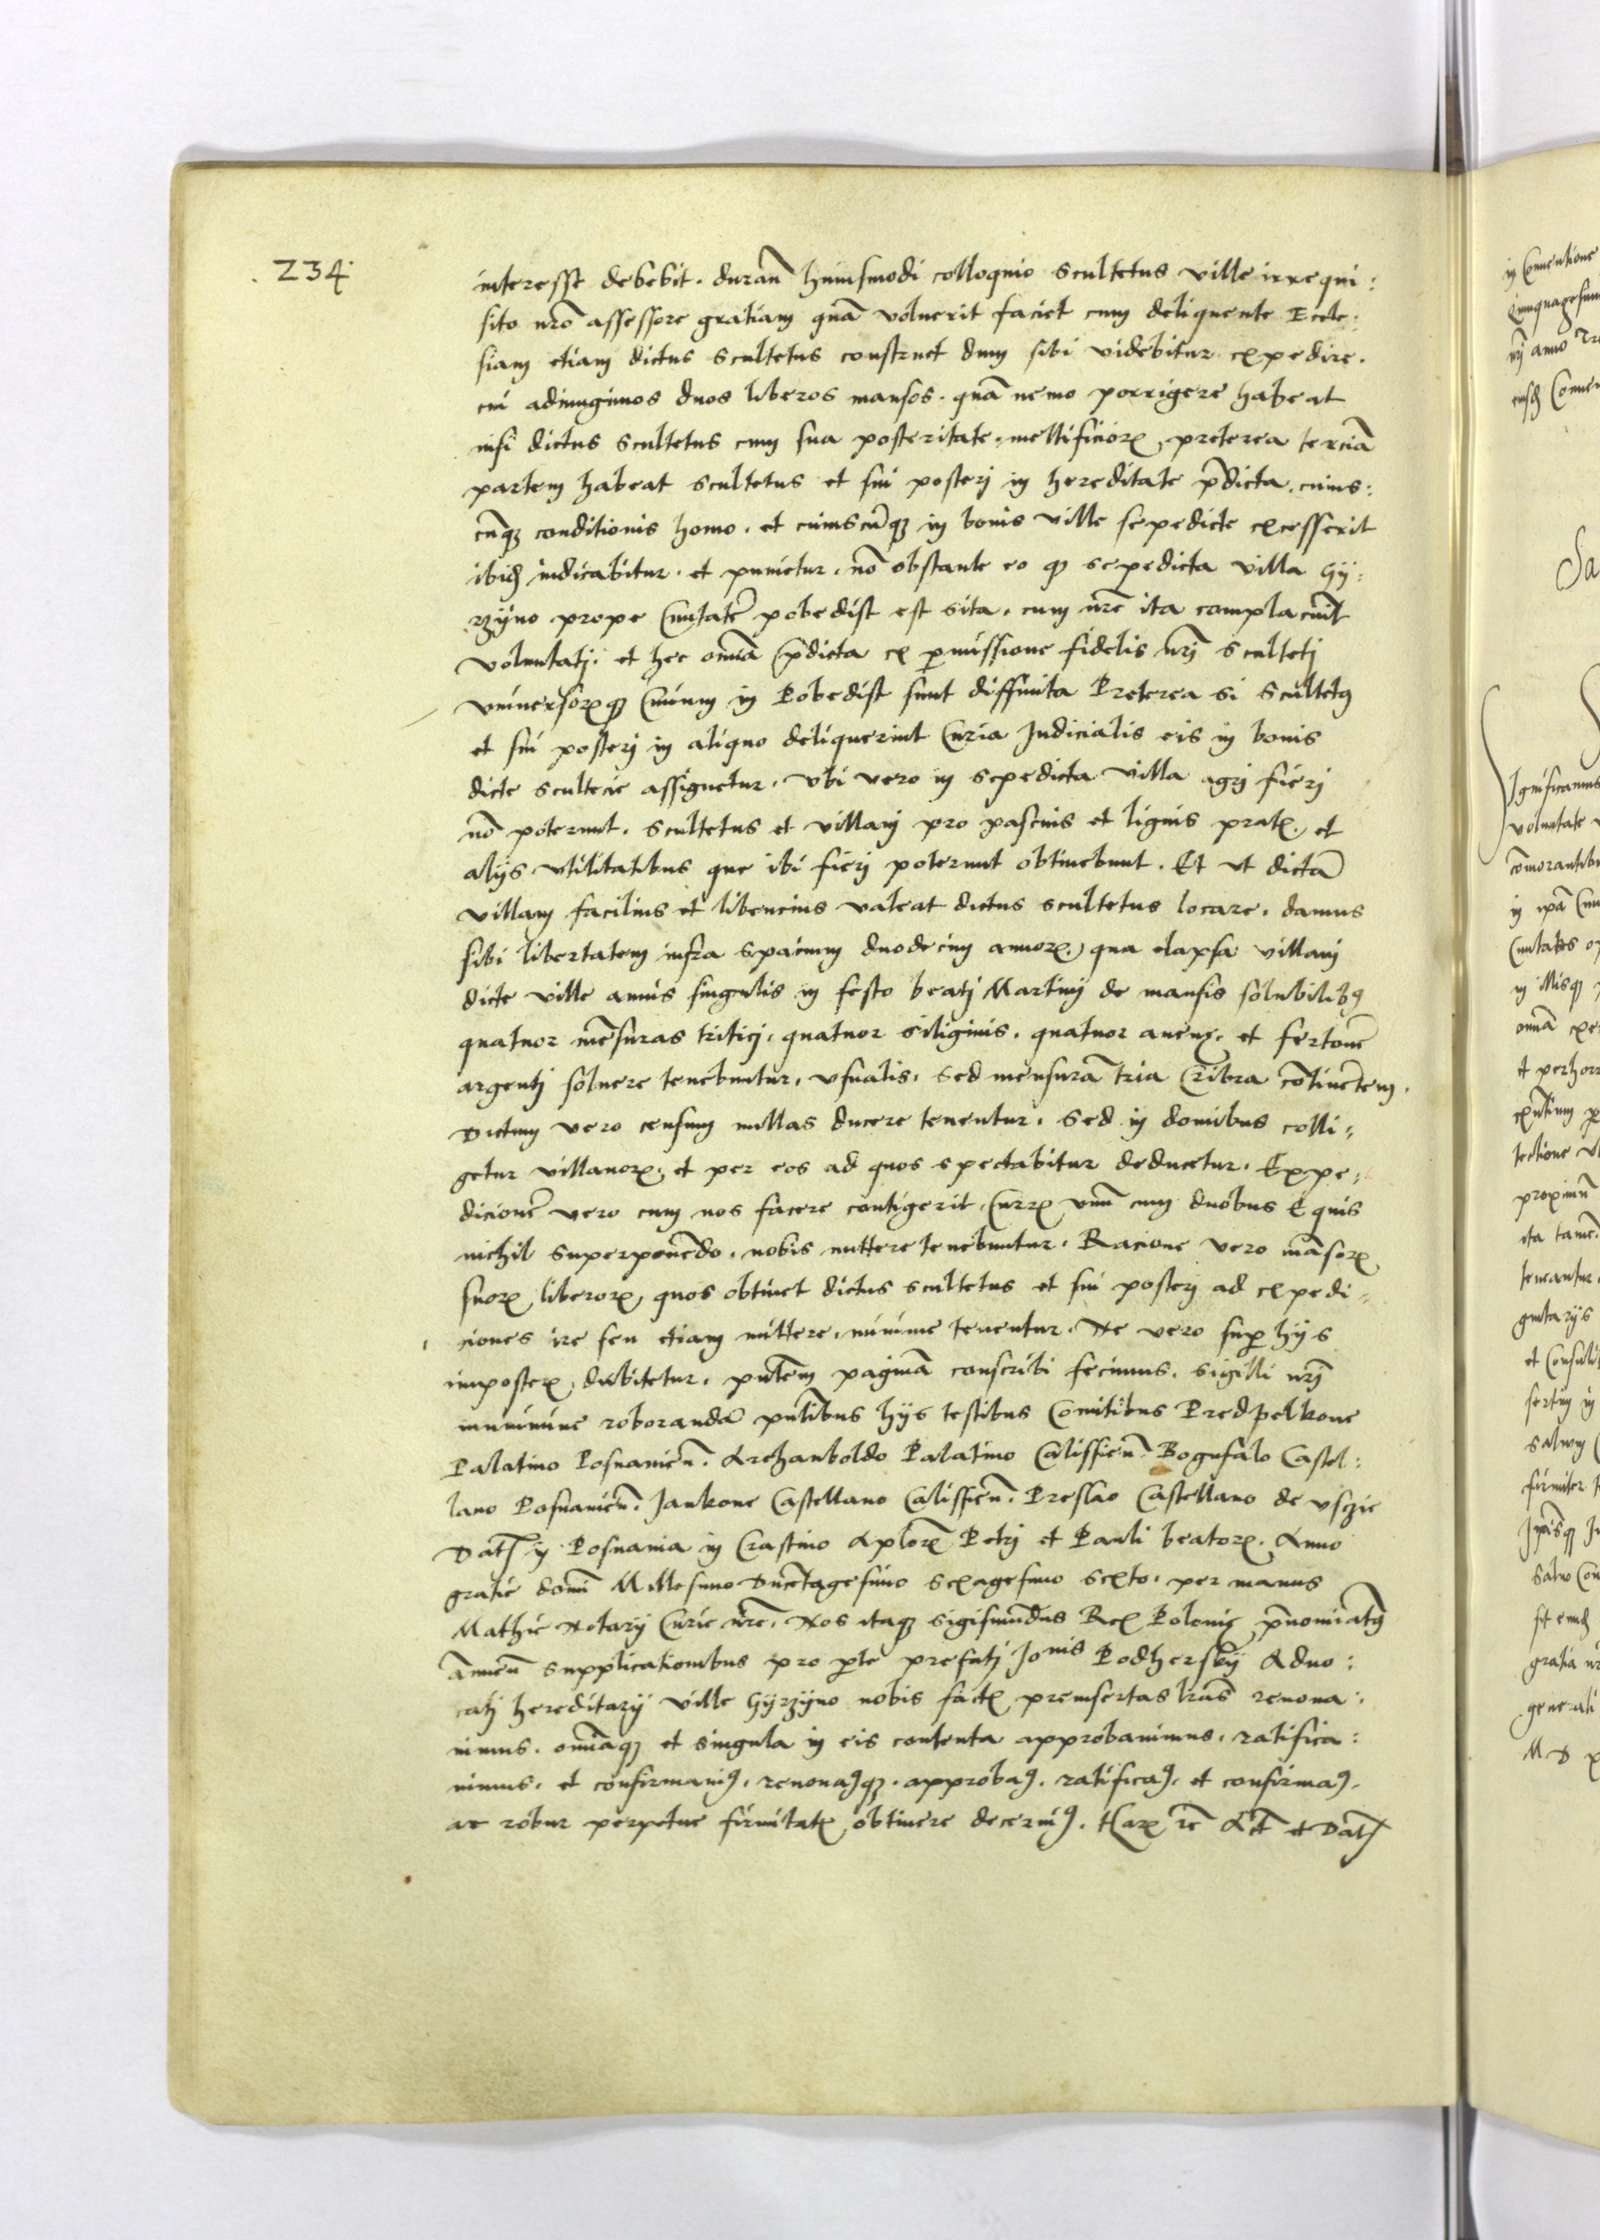 234
interesse debebit. duran̄ huiusmodi colloquio scultetus ville irrequi:
sito nr̄o assessore gratiam quā voluerit faciet cum deliquente Eccle:
siam etiam dictus scultetus construet dum sibi videbitur expedire.
cui adiungimus duos liberos mansos. quā nemo porrigere habeat
nisi dictus scultetus cum sua posteritate. mellificiorꝝ preterea terciā
partem habeat scultetus et sui posterj in hereditate p̄dicta. cuius:
cūqꝫ conditionis homo. et cuiuscūqꝫ in bonis ville sepedicte excesserit
ibidē iudicabitur. et punietur. nō obstante eo qꝫ sepedicta villa Gÿ:
rzÿno prope Ciuitatē pobedist est sita. cum nr̄e ita complacuit
voluntatj. et hec om̄ia p̄dicta ex ꝑmissione fidelis nr̄j scultetj
vniuersorꝝqꝫ Ciuium in Pobedist sunt diffinita Preterea si scultetꝯ
et sui posterj in aliquo deliquerint Curia Judicialis eis in bonis
dicte scultecie assignetur. vbi vero in sepedicta villa agrj fierj
nō poterunt. scultetus et villanj pro pascuis et lignis pratꝭ. et
alijs vtilitatibus que ibi fierj poterunt obtinebunt. Et vt dictā
villam facilius et libencius valeat dictus scultetus locare. damus
sibi libertatem infra spacium duodecim annorꝝ. qua elapsa villanj
dicte ville annis singulis in festo beatj Martinj de mansis solubilibꝯ
quatuor mēsuras triticj. quatuor siliginis. quatuor auenę. et fertonē
argentj soluere tenebuntur. vsualis. sed mensurā tria Cribra cōtinētem.
Dictum vero censum nullas ducere tenentur. sed in domibus colli:
getur villanorꝝ. et per eos ad quos spectabitur deducetur. Expe:
dicionē vero cum nos facere contigerit. Currꝝ vnū cum duobus Equis
nichil superponēdo. nobis mittere tenebuntur. Racione vero māsorꝝ
suorꝝ liberorꝝ quos obtinet dictus scultetus et sui posterj ad expedi:
ciones ire seu etiam mittere. minime tenentur. Ne vero suꝑ hijs
imposterꝝ dubitetur. pn̄tem paginā conscribi fecimus. sigilli nr̄j
munimine roborandā pn̄tibus hijs testibus Comitibus Predpelkone
Palatino Posnanien̄. Archanboldo Palatino Calissien̄. Bogufalo Castel:
lano Posnanien̄. Jankone Castellano Calissien̄. Preslao Castellano de vsczie
Datꝭ in Posnania in Crastino Aplorꝝ Petrj et Pauli beatorꝝ. Anno
gratie domī Millesimo Ducētagesimo sexagesimo sexto. per manus
Mathie Notarij Curie nr̄e. Nos itaqꝫ sigismūdus Rex Polonię p̄nominatꝯ
ānuen̄ supplicationibus pro ꝑte prefatj Jonis Podherskÿ Aduo:
catj hereditarij ville Gÿrzÿno nobis factꝭ preinsertas lr̄as renoua:
uimus. om̄iaqꝫ et singula in eis contenta approbauimus. ratifica:
uimus. et confirmauiꝯ. renouaꝯqꝫ. approbaꝯ. ratificaꝯ. et confirmaꝯ.
ac robur perpetue firmitatꝭ obtinere decerniꝯ. Harꝝ rē Act̄ et Datꝭ